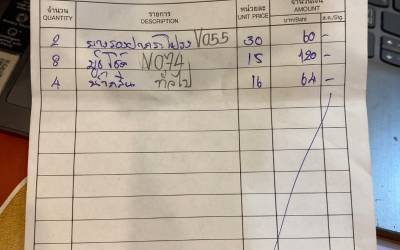 จำนวน รายการ หน่วยละ จำนวนเงิน
QUANTITY DESCRIPTION UNIT PRICE AMOUNT
บาท/Baht ส.ต./Stg.
2 V055 30 60 -
8 N074 15 120 -
4 ทั่วไป 16 64 -